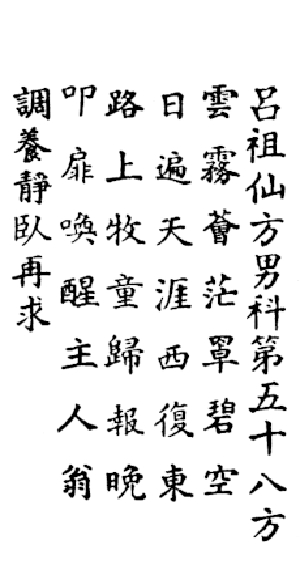 呂祖仙方男科第五十八方
雲霧薈茫罩碧空
日遍天涯西復東
路上牧童歸報晚
叩扉喚醒主人翁
調養靜臥再求